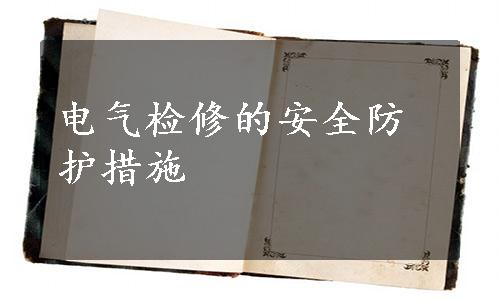 电气检修的安全防
护措施